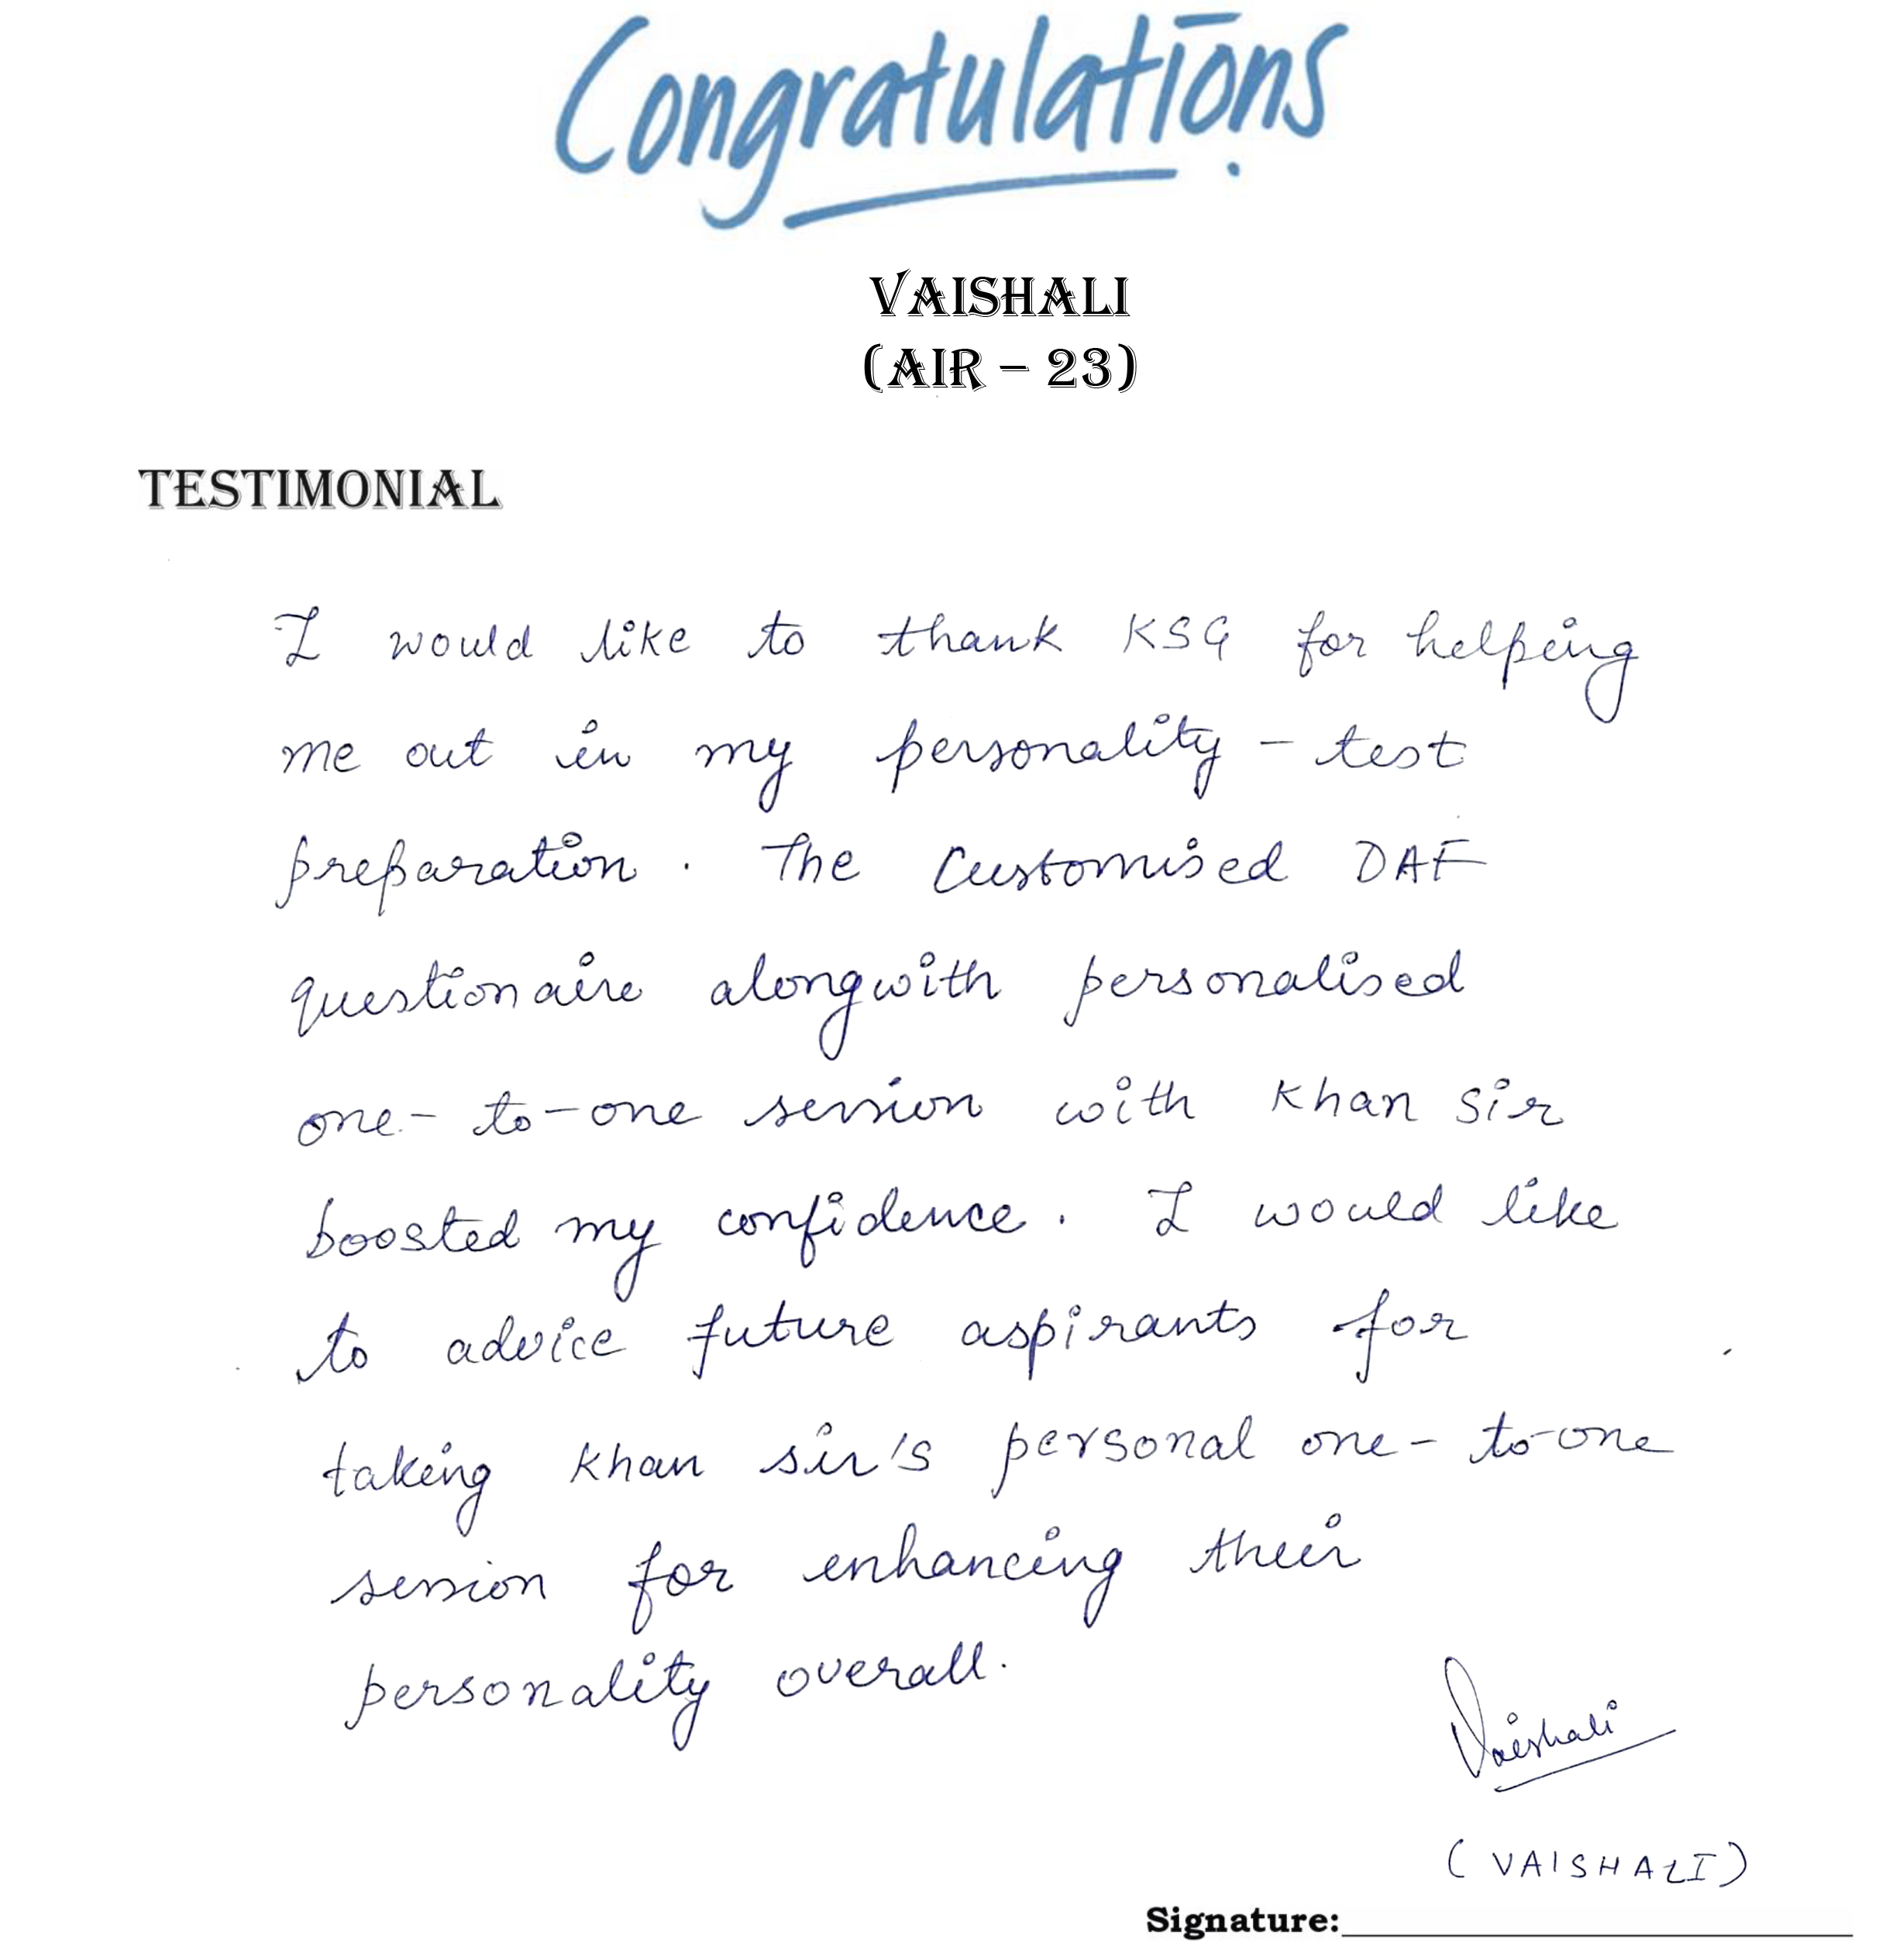 Congratulations
VAISHALI
(AIR – 23)
TESTIMONIAL
I would like to thank KSG for helping
me out in my personality - test
preparation. The Customised DAF
questionaire alongwith personalised
one-to-one session with Khan Sir
boosted my confidence. I would like
to advice future aspirants for
taking Khan sir's personal one-to-one
session for enhancing their
personality overall.
Vaishali
(VAISHALI)
Signature: